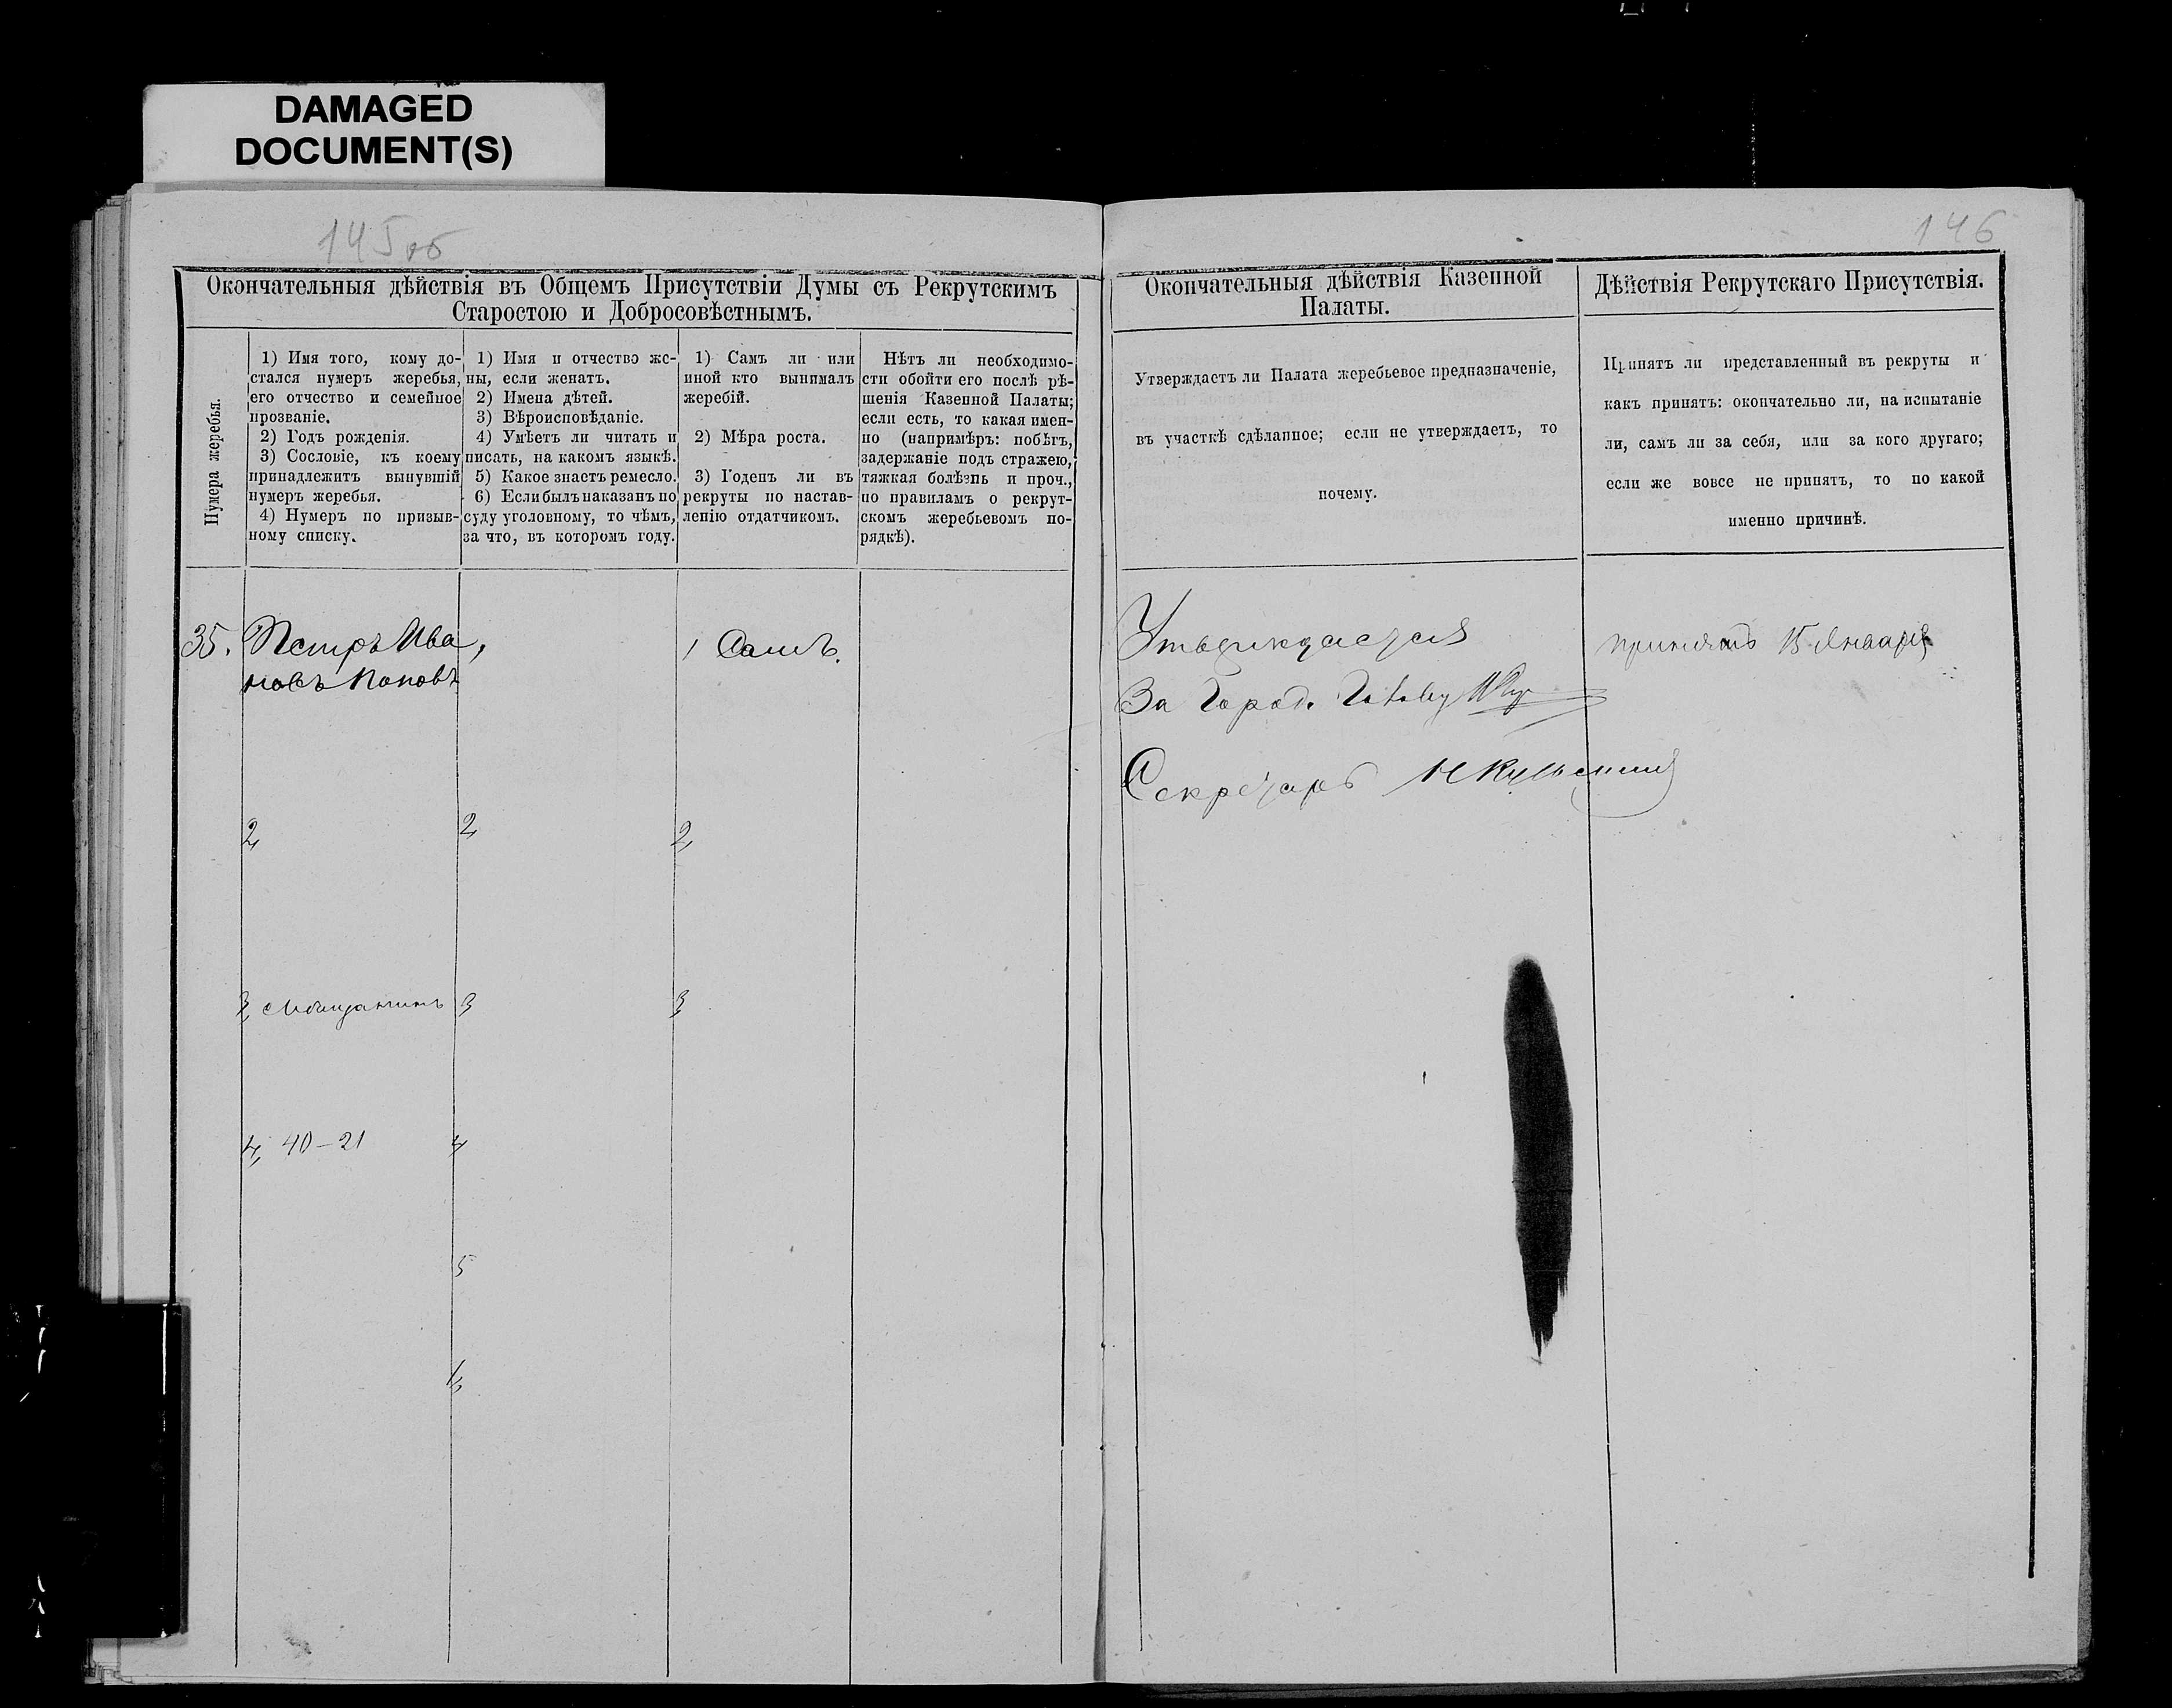 DAMAGED
DOCUMENT(S)
145об
146
Окончательныя дѣйствія въ Общемъ Присутствіи Думы съ Рекрутскимъ
Старостою и Добросовѣстнымъ.
Нумера жеребья.
1) Имя того, кому до-
стался нумеръ жеребья,
его отчество и семейное
прозваніе.
2) Годъ рожденія.
3) Сословіе, къ коему
принадлежитъ вынувшій
нумеръ жеребья.
4) Нумеръ по призыв-
ному списку.
1) Имя и отчество же-
ны, если женатъ.
2) Имена дѣтей.
3) Вѣроисповѣданіе.
4) Умѣетъ ли читать и
писать, на какомъ языкѣ.
5) Какое знаетъ ремесло.
6) Если былъ наказанъ по
суду уголовному, то чѣмъ,
за что, въ которомъ году.
1) Самъ ли или
иной кто вынималъ
жеребій.
2) Мѣра роста.
3) Годенъ ли въ
рекруты по настав-
ленію отдатчикомъ.
Нѣтъ ли необходимо-
сти обойти его послѣ рѣ-
шенія Казенной Палаты;
если есть, то какая имен-
но (напримѣръ: побѣгъ,
задержаніе подъ стражею,
тяжкая болѣзнь и проч.,
по правиламъ о рекрут-
скомъ жеребьевомъ по-
рядкѣ).
Окончательныя дѣйствія Казенной
Палаты.
Утверждаетъ ли Палата жеребьевое предназначеніе,
въ участкѣ сдѣланное; если не утверждаетъ, то
почему.
Дѣйствія Рекрутскаго Присутствія.
Принятъ ли представленный въ рекруты и
какъ принятъ: окончательно ли, на испытаніе
ли, самъ ли за себя, или за кого другаго;
если же вовсе не принятъ, то по какой
именно причинѣ.
35. Петръ Ива
новъ Поповъ
1 Самъ.
2, 2, 2,
3, Мѣщанинъ 3 3
4, 40-21 4
5
6
Утверждается
За Город. Голову
Секретарь
принятъ 15 Января